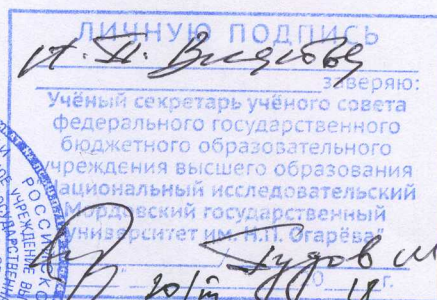 ЛИЧНУЮ ПОДПИСЬ
заверяю:
Учёный секретарь учёного совета
федерального государственного
бюджетного образовательного
учреждения высшего образования
Национальный исследовательский
Мордовский государственный
университет им. Н.П. Огарёва"
Гудов
20/III г.